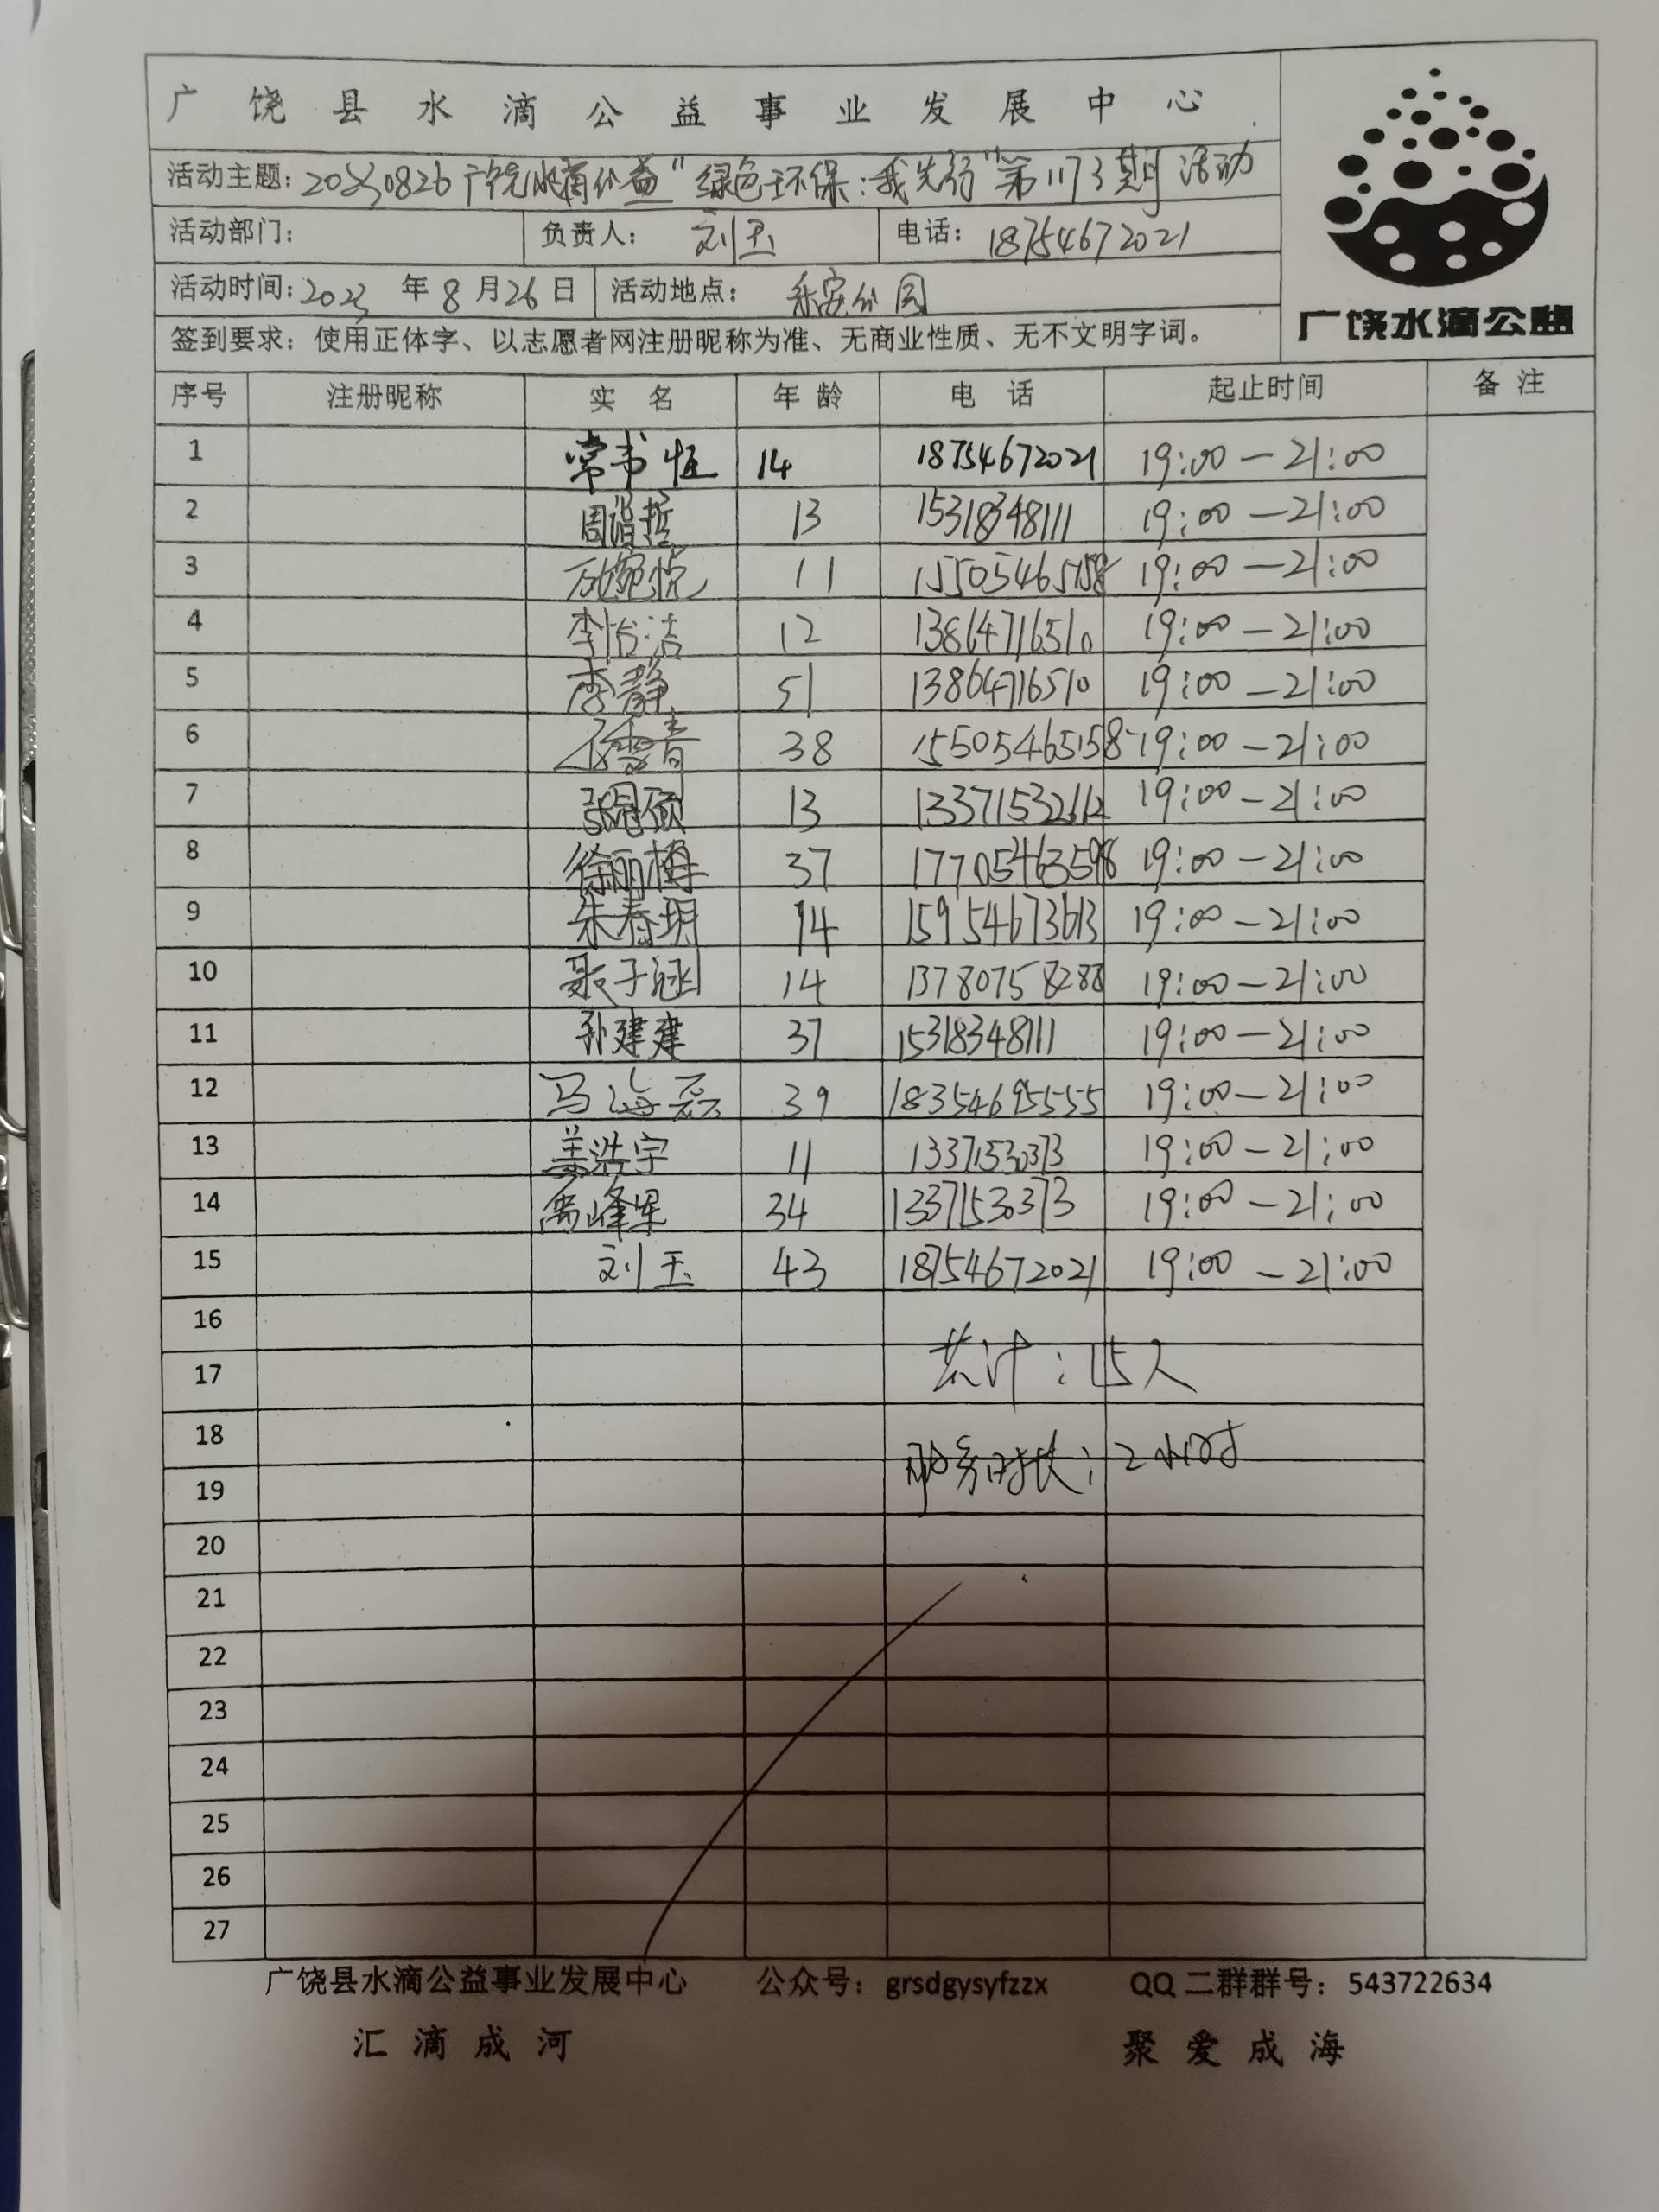 广饶县水滴公益事业发展中心
活动主题：20230826广饶水滴公益"绿色环保：我先行"第1173期活动
活动部门： 负责人：刘玉 电话：18754672021
活动时间：2023年8月26日 活动地点：乐安公园
广饶水滴公益
签到要求：使用正体字、以志愿者网注册昵称为准、无商业性质、无不文明字词。
序号 注册昵称 实名 年龄 电话 起止时间 备注
1 常书恒 14 18754672021 19:00—21:00
2 周谐哲 13 15318348111 19:00—21:00
3 11 15505465158 19:00—21:00
4 李怡洁 12 13864716510 19:00—21:00
5 李静 51 13864716510 19:00—21:00
6 38 15505465158 19:00—21:00
7 13 13371532612 19:00—21:00
8 徐丽梅 37 19:00—21:00
9 朱春玥 14 15954673613 19:00—21:00
10 聂子涵 14 13780758288 19:00—21:00
11 孙建建 37 15318348111 19:00—21:00
12 马海磊 39 18354695555 19:00—21:00
13 姜浩宇 11 13371530373 19:00—21:00
14 34 13371530373 19:00—21:00
15 刘玉 43 18754672021 19:00—21:00
16
17 共计：15人
18
服务时长：2小时
19
20
21
22
23
24
25
26
27
广饶县水滴公益事业发展中心 公众号：grsdgysyfzzx QQ二群群号：543722634
汇滴成河 聚爱成海